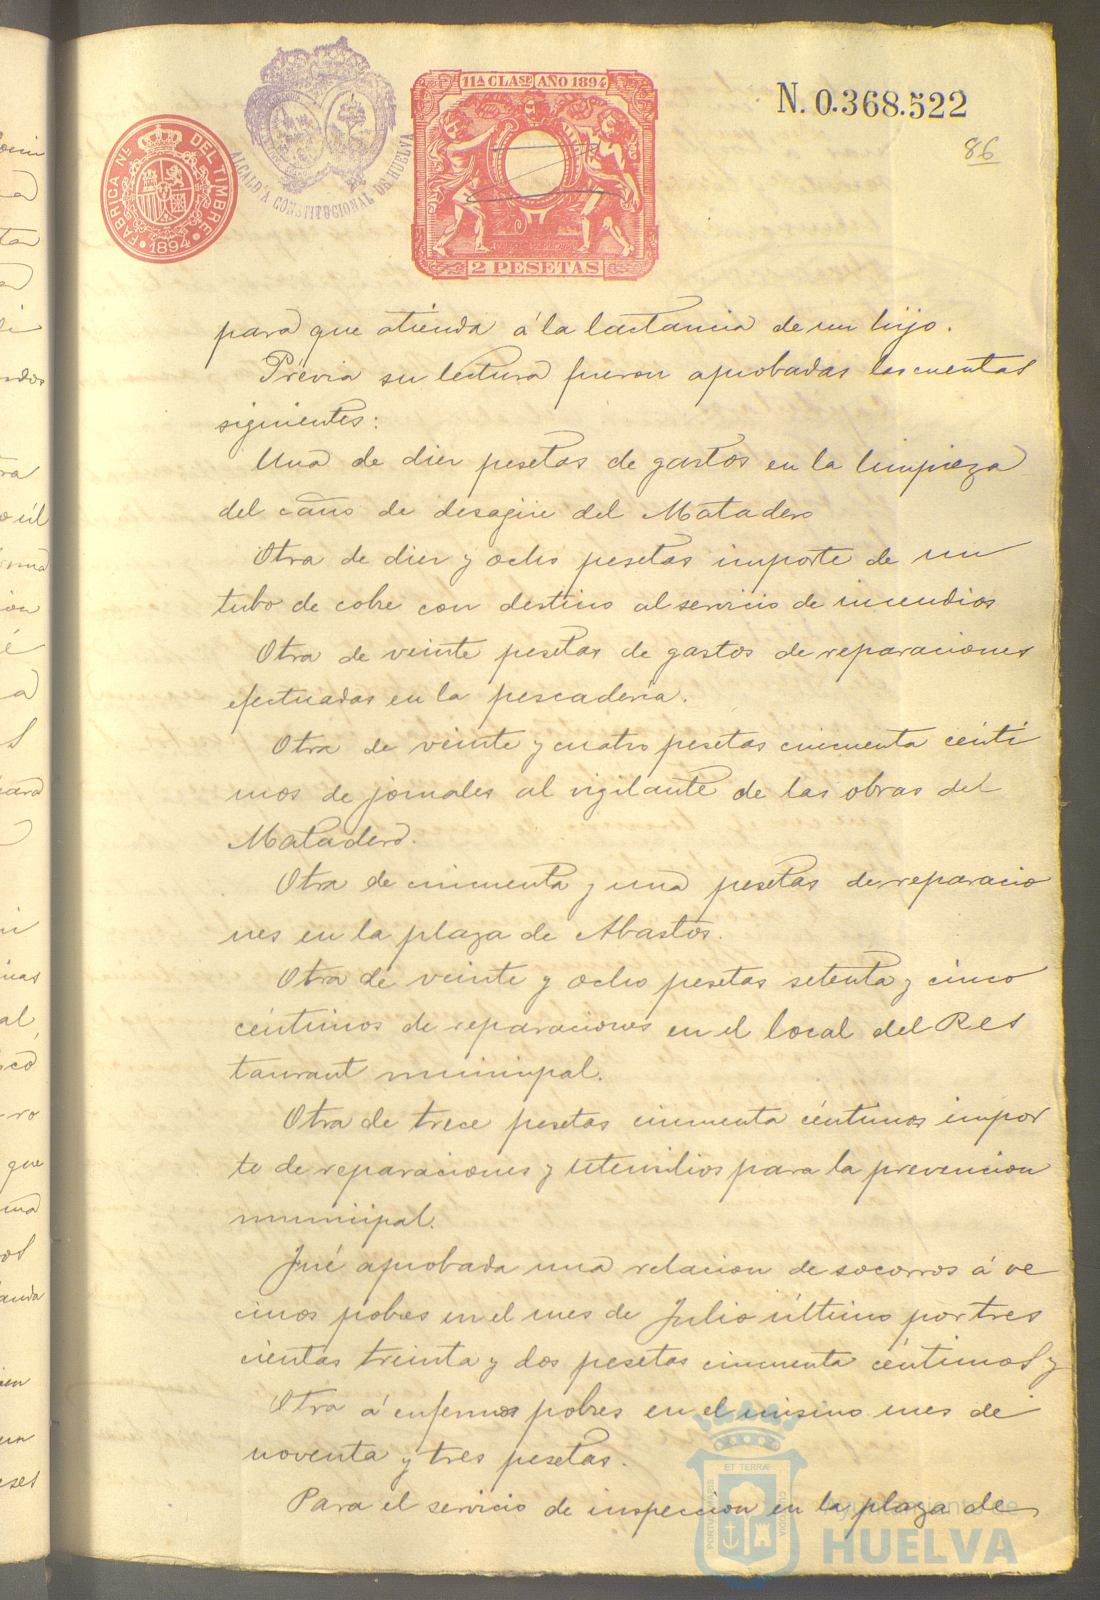 11ª CLASE AÑO 1894
N. 0.368.522
86
FABRICA NL. DEL TIMBRE
1894
ALCALDIA CONSTITUCIONAL DE HUELVA
2 PESETAS
para que atienda á la lactancia de un hijo.
Prévia su lectura fueron aprobadas las cuentas
siguientes:
Una de diez pesetas de gastos en la limpieza
del caño de desagüe del Matadero
Otra de diez y ocho pesetas importe de un
tubo de cobre con destino al servicio de incendios
Otra de veinte pesetas de gastos de reparaciones
efectuadas en la pescaderia.
Otra de veinte y cuatro pesetas cincuenta cénti
mos de jornales al vigilante de las obras del
Matadero.
Otra de cincuenta y una pesetas de reparacio
nes en la plaza de Abastos.
Otra de veinte y ocho pesetas setenta y cinco
céntimos de reparaciones en el local del Res
taurant municipal.
Otra de trece pesetas cincuenta céntimos impor
te de reparaciones y utensilios para la prevencion
municipal.
Fué aprobada una relacion de socorros á ve
cinos pobres en el mes de Julio último por tres
cientas treinta y dos pesetas cincuenta céntimos y
Otra á enfermos pobres en el mismo mes de
noventa y tres pesetas.
Para el servicio de inspeccion en la plaza de
Ayuntamiento de
HUELVA